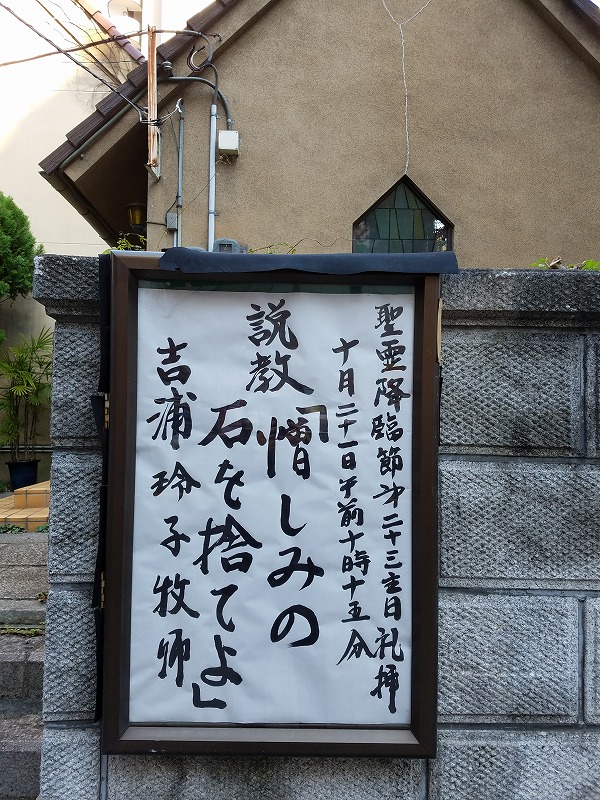 聖霊降臨節第二十三主日礼拝
十月二十一日午前十時十五分
説教「憎しみの
石を捨てよ」
吉浦玲子牧師